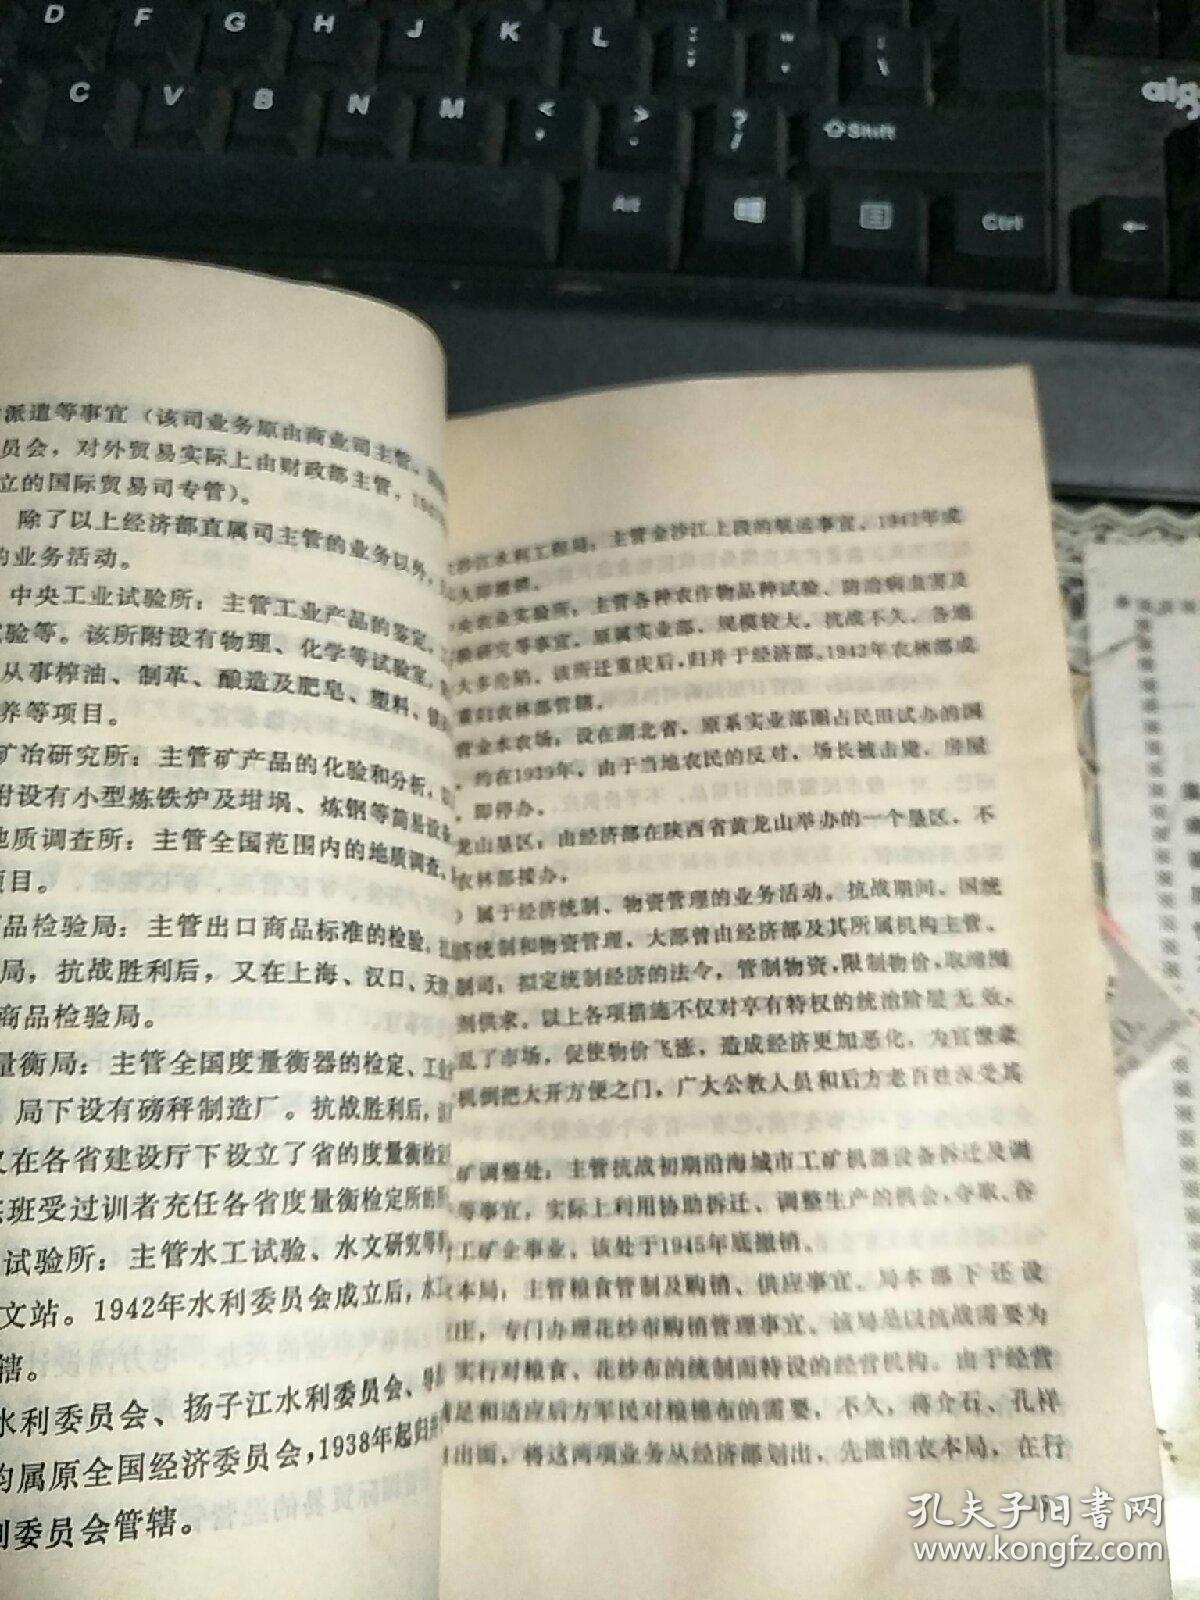 D F G H J K L : ; " '
C V B N M < , > . ? / Shift
Alt Ctrl ←
派遣等事宜（该司业务原由商业司主管，
员会，对外贸易实际上由财政部主管，
立的国际贸易司专管）。
除了以上经济部直属司主管的业务以外，
的业务活动。
中央工业试验所：主管工业产品的鉴定、
试验等。该所附设有物理、化学等试验室，
从事榨油、制革、酿造及肥皂、塑料、
养等项目。
矿冶研究所：主管矿产品的化验和分析，
附设有小型炼铁炉及坩埚、炼钢等简易设备
地质调查所：主管全国范围内的地质调查、
项目。
商品检验局：主管出口商品标准的检验，
局，抗战胜利后，又在上海、汉口、天
商品检验局。
量衡局：主管全国度量衡器的检定、工业
局下设有磅秤制造厂。抗战胜利后，
又在各省建设厅下设立了省的度量衡检定
班受过训者充任各省度量衡检定所的所
试验所：主管水工试验、水文研究等
文站。1942年水利委员会成立后，水工
辖。
水利委员会、扬子江水利委员会、导
均属原全国经济委员会，1938年起归
利委员会管辖。
沙江水利工程局：主管金沙江上段的航运事宜。1942年成
久即撤销。
央农业实验所：主管各种农作物品种试验、防治病虫害及
验研究等事宜。原属实业部，规模较大。抗战不久，各地
大多沦陷，该所迁重庆后，归并于经济部。1942年农林部成
重归农林部管辖。
营金水农场：设在湖北省。原系实业部圈占民田试办的国
，约在1939年，由于当地农民的反对，场长被击毙，房屋
，即停办。
龙山垦区：由经济部在陕西省黄龙山举办的一个垦区，不
农林部接办。
）属于经济统制、物资管理的业务活动。抗战期间，国统
济统制和物资管理，大部曾由经济部及其所属机构主管。
制司：拟定统制经济的法令，管制物资，限制物价，取缔囤
剂供求。以上各项措施不仅对享有特权的统治阶层无效，
乱了市场，促使物价飞涨，造成经济更加恶化，为官僚豪
机倒把大开方便之门，广大公教人员和后方老百姓深受其
矿调整处：主管抗战初期沿海城市工矿机器设备拆迁及调
等事宜，实际上利用协助拆迁、调整生产的机会，夺取、吞
工矿企事业。该处于1945年底撤销。
本局：主管粮食管制及购销、供应事宜。局本部下还设
庄，专门办理花纱布购销管理事宜。该局是以抗战需要为
实行对粮食、花纱布的统制而特设的经营机构。由于经营
足和适应后方军民对粮棉布的需要，不久，蒋介石、孔祥
出面，将这两项业务从经济部划出，先撤销农本局，在行
15
孔夫子旧书网
www.kongfz.com